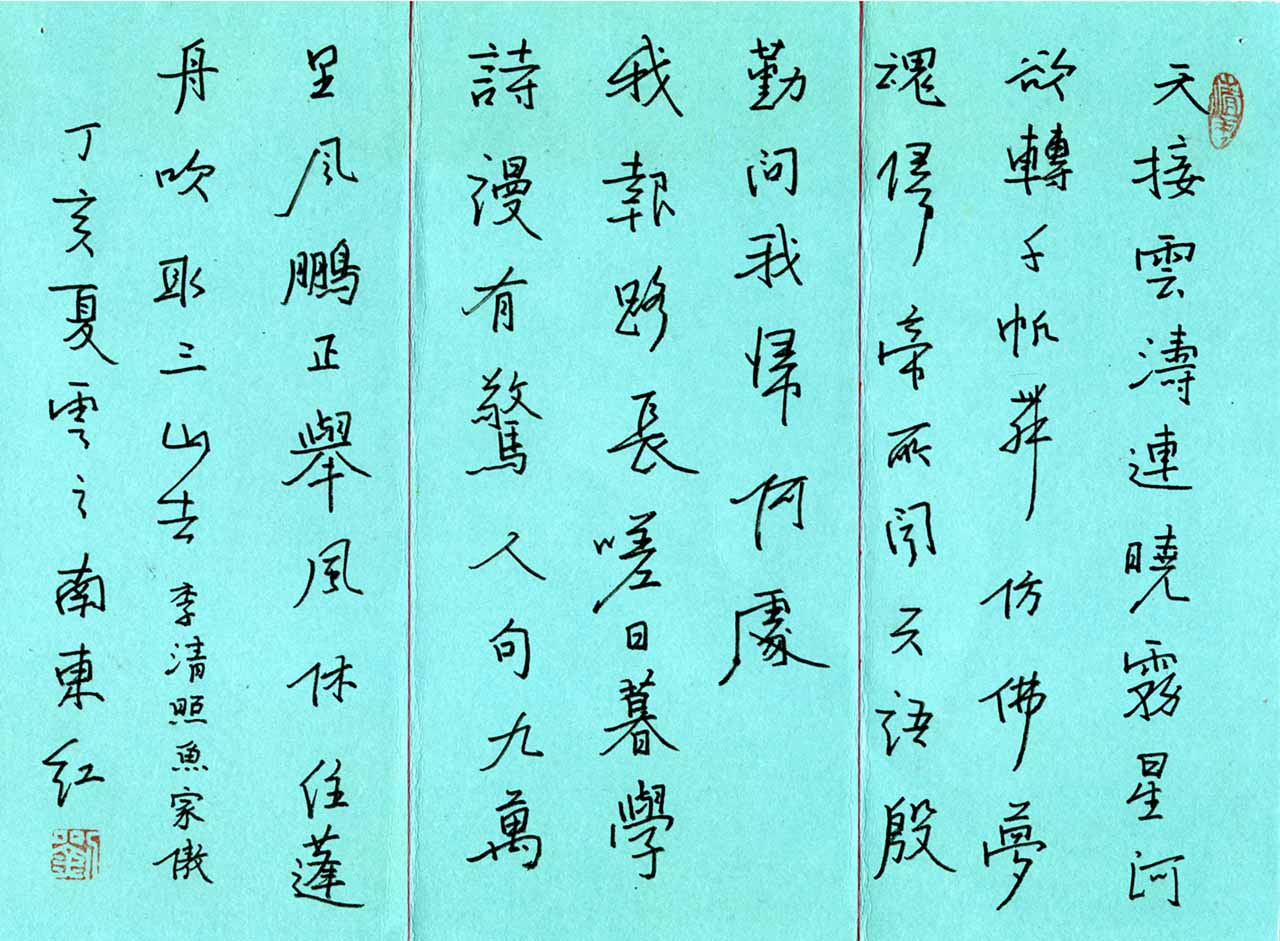 天接雲濤連曉霧星河
欲轉千帆舞仿佛夢
魂歸帝所聞天語殷
勤問我歸何處
我報路長嗟日暮學
詩漫有驚人句九萬
里風鵬正舉風休住蓬
舟吹取三山去 李清照魚家傲
丁亥夏雲之南東紅